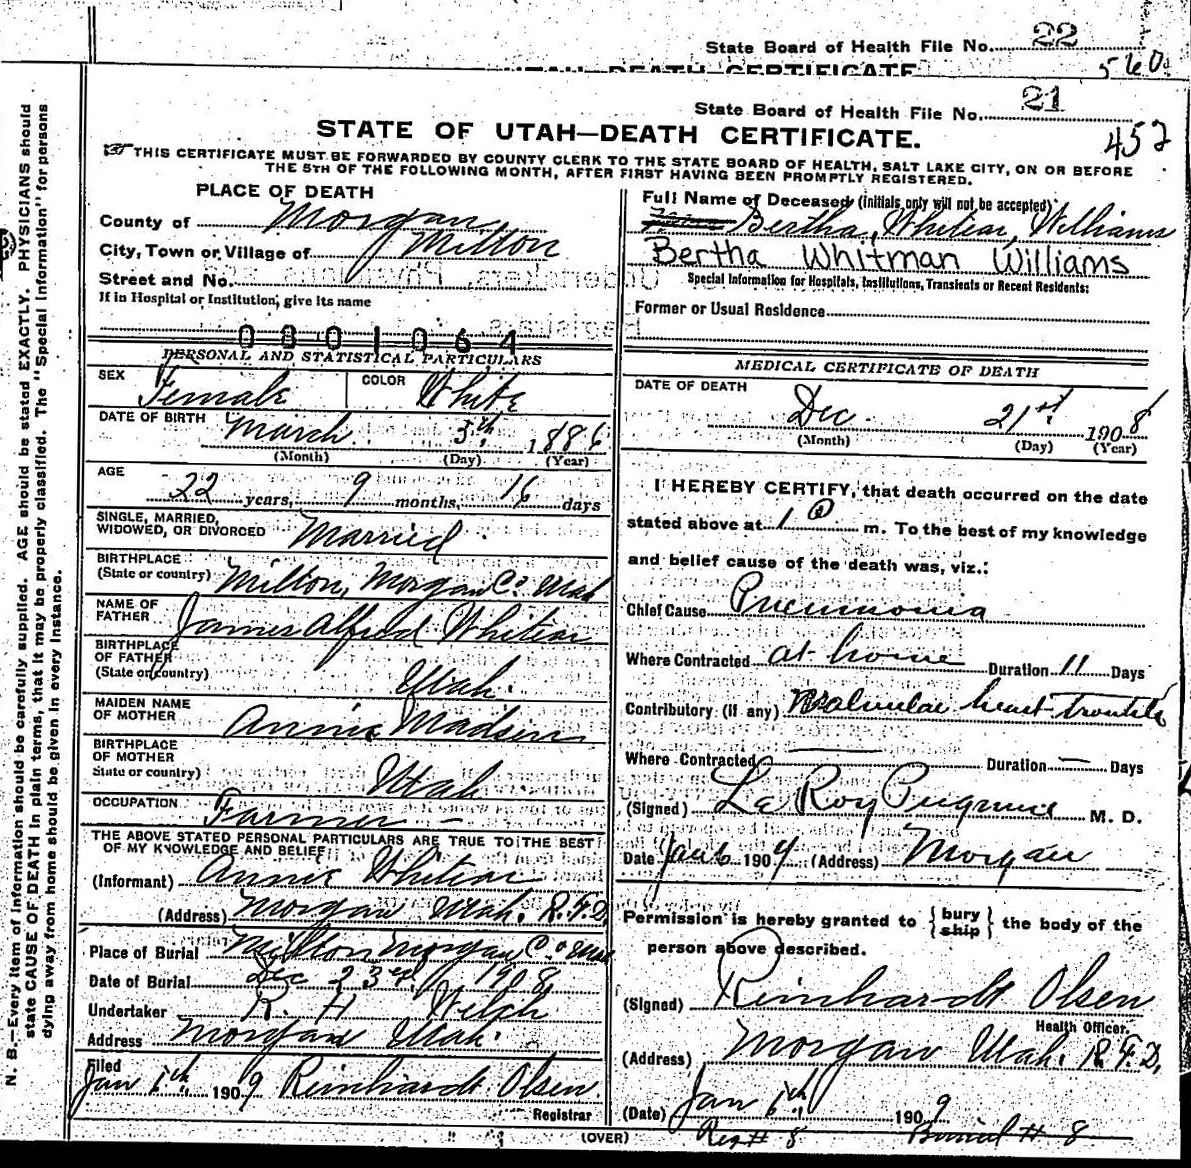 State Board of Health File No. 22
560
UTAH—DEATH CERTIFICATE
State Board of Health File No. 21
STATE OF UTAH—DEATH CERTIFICATE.
452
THIS CERTIFICATE MUST BE FORWARDED BY COUNTY CLERK TO THE STATE BOARD OF HEALTH, SALT LAKE CITY, ON OR BEFORE
THE 5TH OF THE FOLLOWING MONTH, AFTER FIRST HAVING BEEN PROMPTLY REGISTERED.
PLACE OF DEATH
County of Morgan
City, Town or Village of Milton
Street and No.
If in Hospital or Institution, give its name
0801064
PERSONAL AND STATISTICAL PARTICULARS
SEX Female COLOR White
DATE OF BIRTH March 5th 1886
(Month) (Day) (Year)
AGE
22 years, 9 months, 16 days
SINGLE, MARRIED,
WIDOWED, OR DIVORCED Married
BIRTHPLACE
(State or country) Milton, Morgan Co. Utah
NAME OF
FATHER James Alfred Whitear
BIRTHPLACE
OF FATHER
(State or country) Utah.
MAIDEN NAME
OF MOTHER Annie Madsen
BIRTHPLACE
OF MOTHER
State or country) Utah
OCCUPATION Farmer —
THE ABOVE STATED PERSONAL PARTICULARS ARE TRUE TO THE BEST
OF MY KNOWLEDGE AND BELIEF
(Informant) Annie Whitear
(Address) Morgan Utah. R.F.D.
Place of Burial Milton Morgan Co. Utah
Date of Burial Dec 23rd 1908
Undertaker R. H Welch
Address Morgan Utah.
Filed
Jan 6th 1909 Reinhardt Olsen
Registrar
Full Name of Deceased (initials only will not be accepted)
Bertha Whitear Williams
Bertha Whitman Williams
Special Information for Hospitals, Institutions, Transients or Recent Residents:
Former or Usual Residence
MEDICAL CERTIFICATE OF DEATH
DATE OF DEATH
Dec 21st 1908
(Month) (Day) (Year)
I HEREBY CERTIFY, that death occurred on the date
stated above at 1 a m. To the best of my knowledge
and belief cause of the death was, viz.:
Chief Cause Pneumonia
Where Contracted at home Duration 11 Days
Contributory (if any) Valvular heart trouble
Where Contracted — Duration — Days
(Signed) Le Roy Pugmire M. D.
Date Jan 6 1909 (Address) Morgan
Permission is hereby granted to { bury ship } the body of the
person above described.
(Signed) Reinhardt Olsen
Health Officer.
(Address) Morgan Utah. R.F.D.
(Date) Jan 6th 1909
Reg # 8 Burial # 8
(OVER)
N. B.—Every item of information should be carefully supplied. AGE should be stated EXACTLY. PHYSICIANS should
state CAUSE OF DEATH in plain terms, that it may be properly classified. The "Special Information" for persons
dying away from home should be given in every instance.